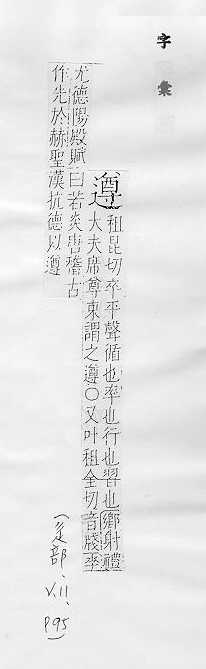 字彙
遵
租昆切卒平聲循也率也行也習也鄉射禮
大夫席尊東謂之遵○又叶租全切音牋李
尤德陽殿賦曰若炎唐稽古
作先於赫聖漢抗德以遵
(辵部、
V.11、
P.95)